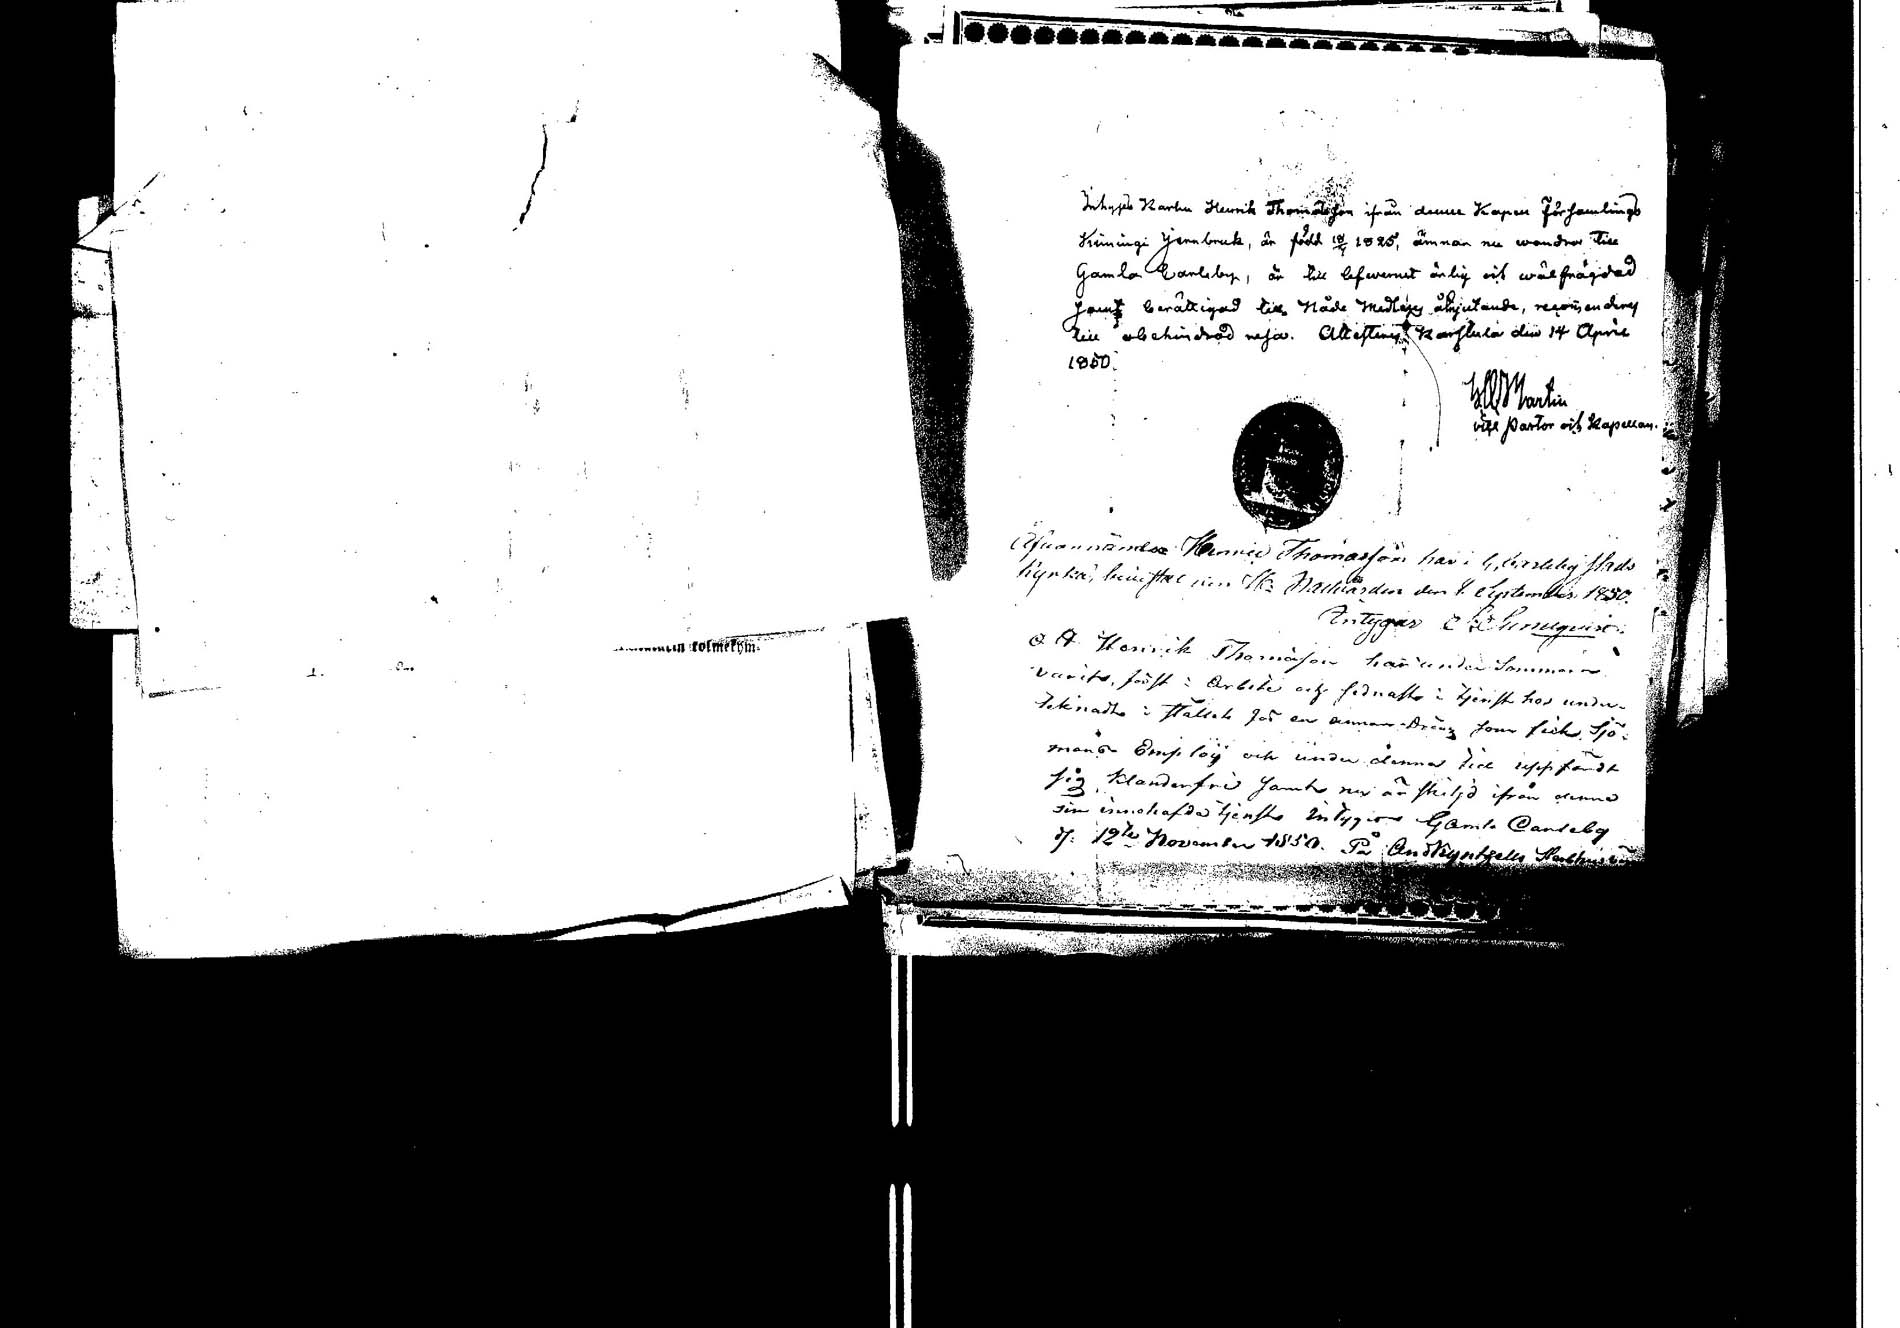 kolmekym-
Inhyses Karlen Henrik Thomasson ifrån denne Kapell Församlings
Kimingi Jernbruk, är född 18/ 1825, ämnar nu wandra till
Gamla Carleby, är till lefwernet ärlig och wälfrägdad
samt berättigad till Nåde Medlens åtnjutande, recommenderas
till obehindrad resa. Attesteras Karstula den 14 April
1850.
Martin
vice Pastor och Kapellan.
Ofvannämnde Henric Thomasson har i G. Carleby stads
kyrka, bevistat den H. Nattvarden den 8 September 1850.
Intygar
Henrik Thomasson har under Sommaren
varit, först i Arbete och sednast i tjenst hos under-
teknade i stället för en annan dräng som fick Sjö-
mans Employ och under denna tid uppfördt
sig klanderfri samt nu är skiljd ifrån denna
sin innehafda tjenst Intygar Gamla Carleby
d. 12te November 1850. På